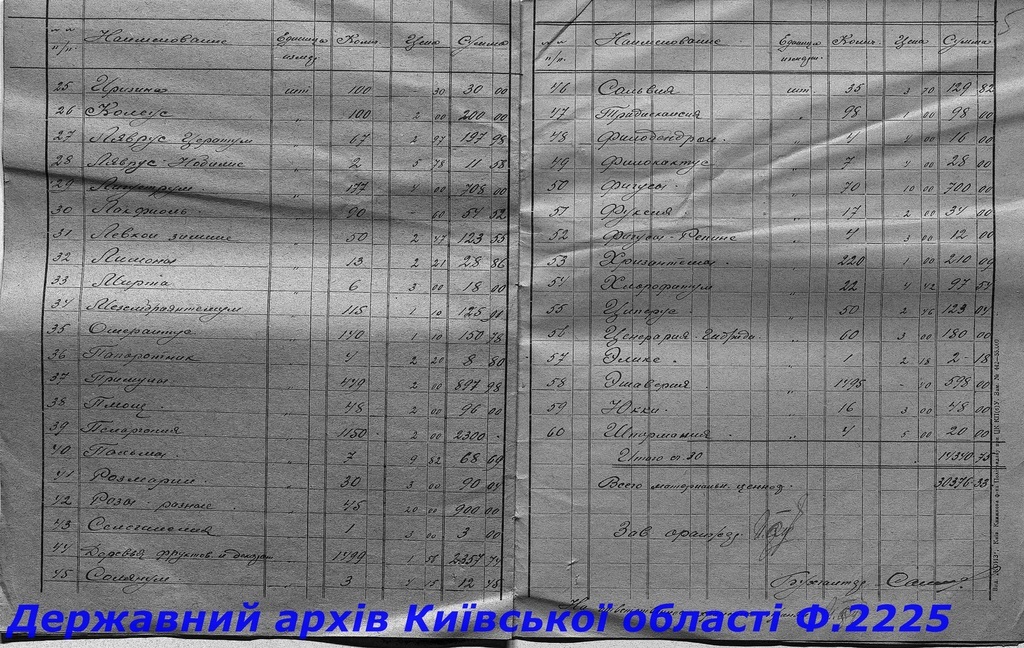 №№ п/п. Наименование Единица измер. Колич. Цена Сумма
25 Ирезина шт. 100 30 30 00
26 Колеус " 100 2 00 200 00
27 Лаврус Церазиум " 67 2 97 197 98
28 Лаврус-Нобилис " 2 5 78 11 58
29 Лигуструм " 177 4 00 708 00
30 Лакфиоль " 90 - 60 54 52
31 Левкои зимние " 50 2 47 123 55
32 Лимоны " 13 2 21 28 86
33 Мирта " 6 3 00 18 00
34 115 1 10 125
35 140 1 10 150 78
36 Папоротник " 4 2 20 8 80
37 Примулы " 449 2 00 897 98
38 Плющ " 48 2 00 96 00
39 Пеларгония 1150 2 00 2300 -
40 Пальмы " 7 9 82 68 69
41 Розмарин " 30 3 00 90 04
42 Розы разные " 45 20 00 900 00
43 1 3 00 3 00
44 Деревья фруктов. и декорат. 1499 1 58 2357 74
45 Солянум " 3 4 15 12 45
№№ п/п. Наименование Единица измерен. Колич. Цена Сумма
46 Сальвия шт. 35 3 70 129 82
47 Традискансия " 98 1 00 98 00
48 Филодендрон " 4 4 00 16 00
49 Филокактус " 7 4 00 28 00
50 Фигусы " 70 10 00 700 00
51 Фуксия " 17 2 00 34 00
52 Фигусы-Репинс " 4 3 00 12 00
53 Хризантемы " 220 1 00 210 09
54 Хлорофитум " 22 4 42 97 54
55 Циперус " 50 2 46 123 04
56 Ценерария-Гибрида 60 3 00 180 00
57 Эликс " 1 2 18 2 18
58 Эшаверия " 1495 - 40 598 00
59 Юкки " 16 3 00 48 00
60 Шпармания " 4 5 00 20 00
Итого ст. 30 14340 75
Всего материальн. ценнос. 30376-33
Зав. оранжер.
Бухгалтер
Державний архів Київської області Ф.2225